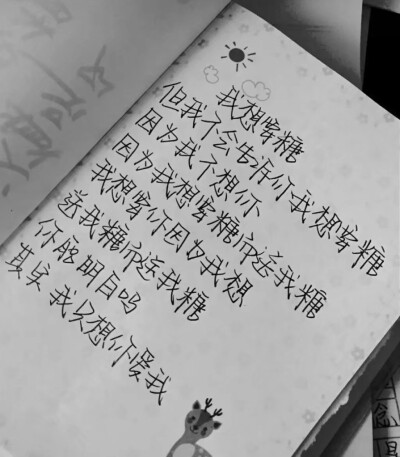 我想要糖
但我不会告诉你我想要糖
因为我不想你
因为我想要糖而送我糖
我想要你因为我想
送我糖而送我糖
你能明白吗
其实我只想你爱我